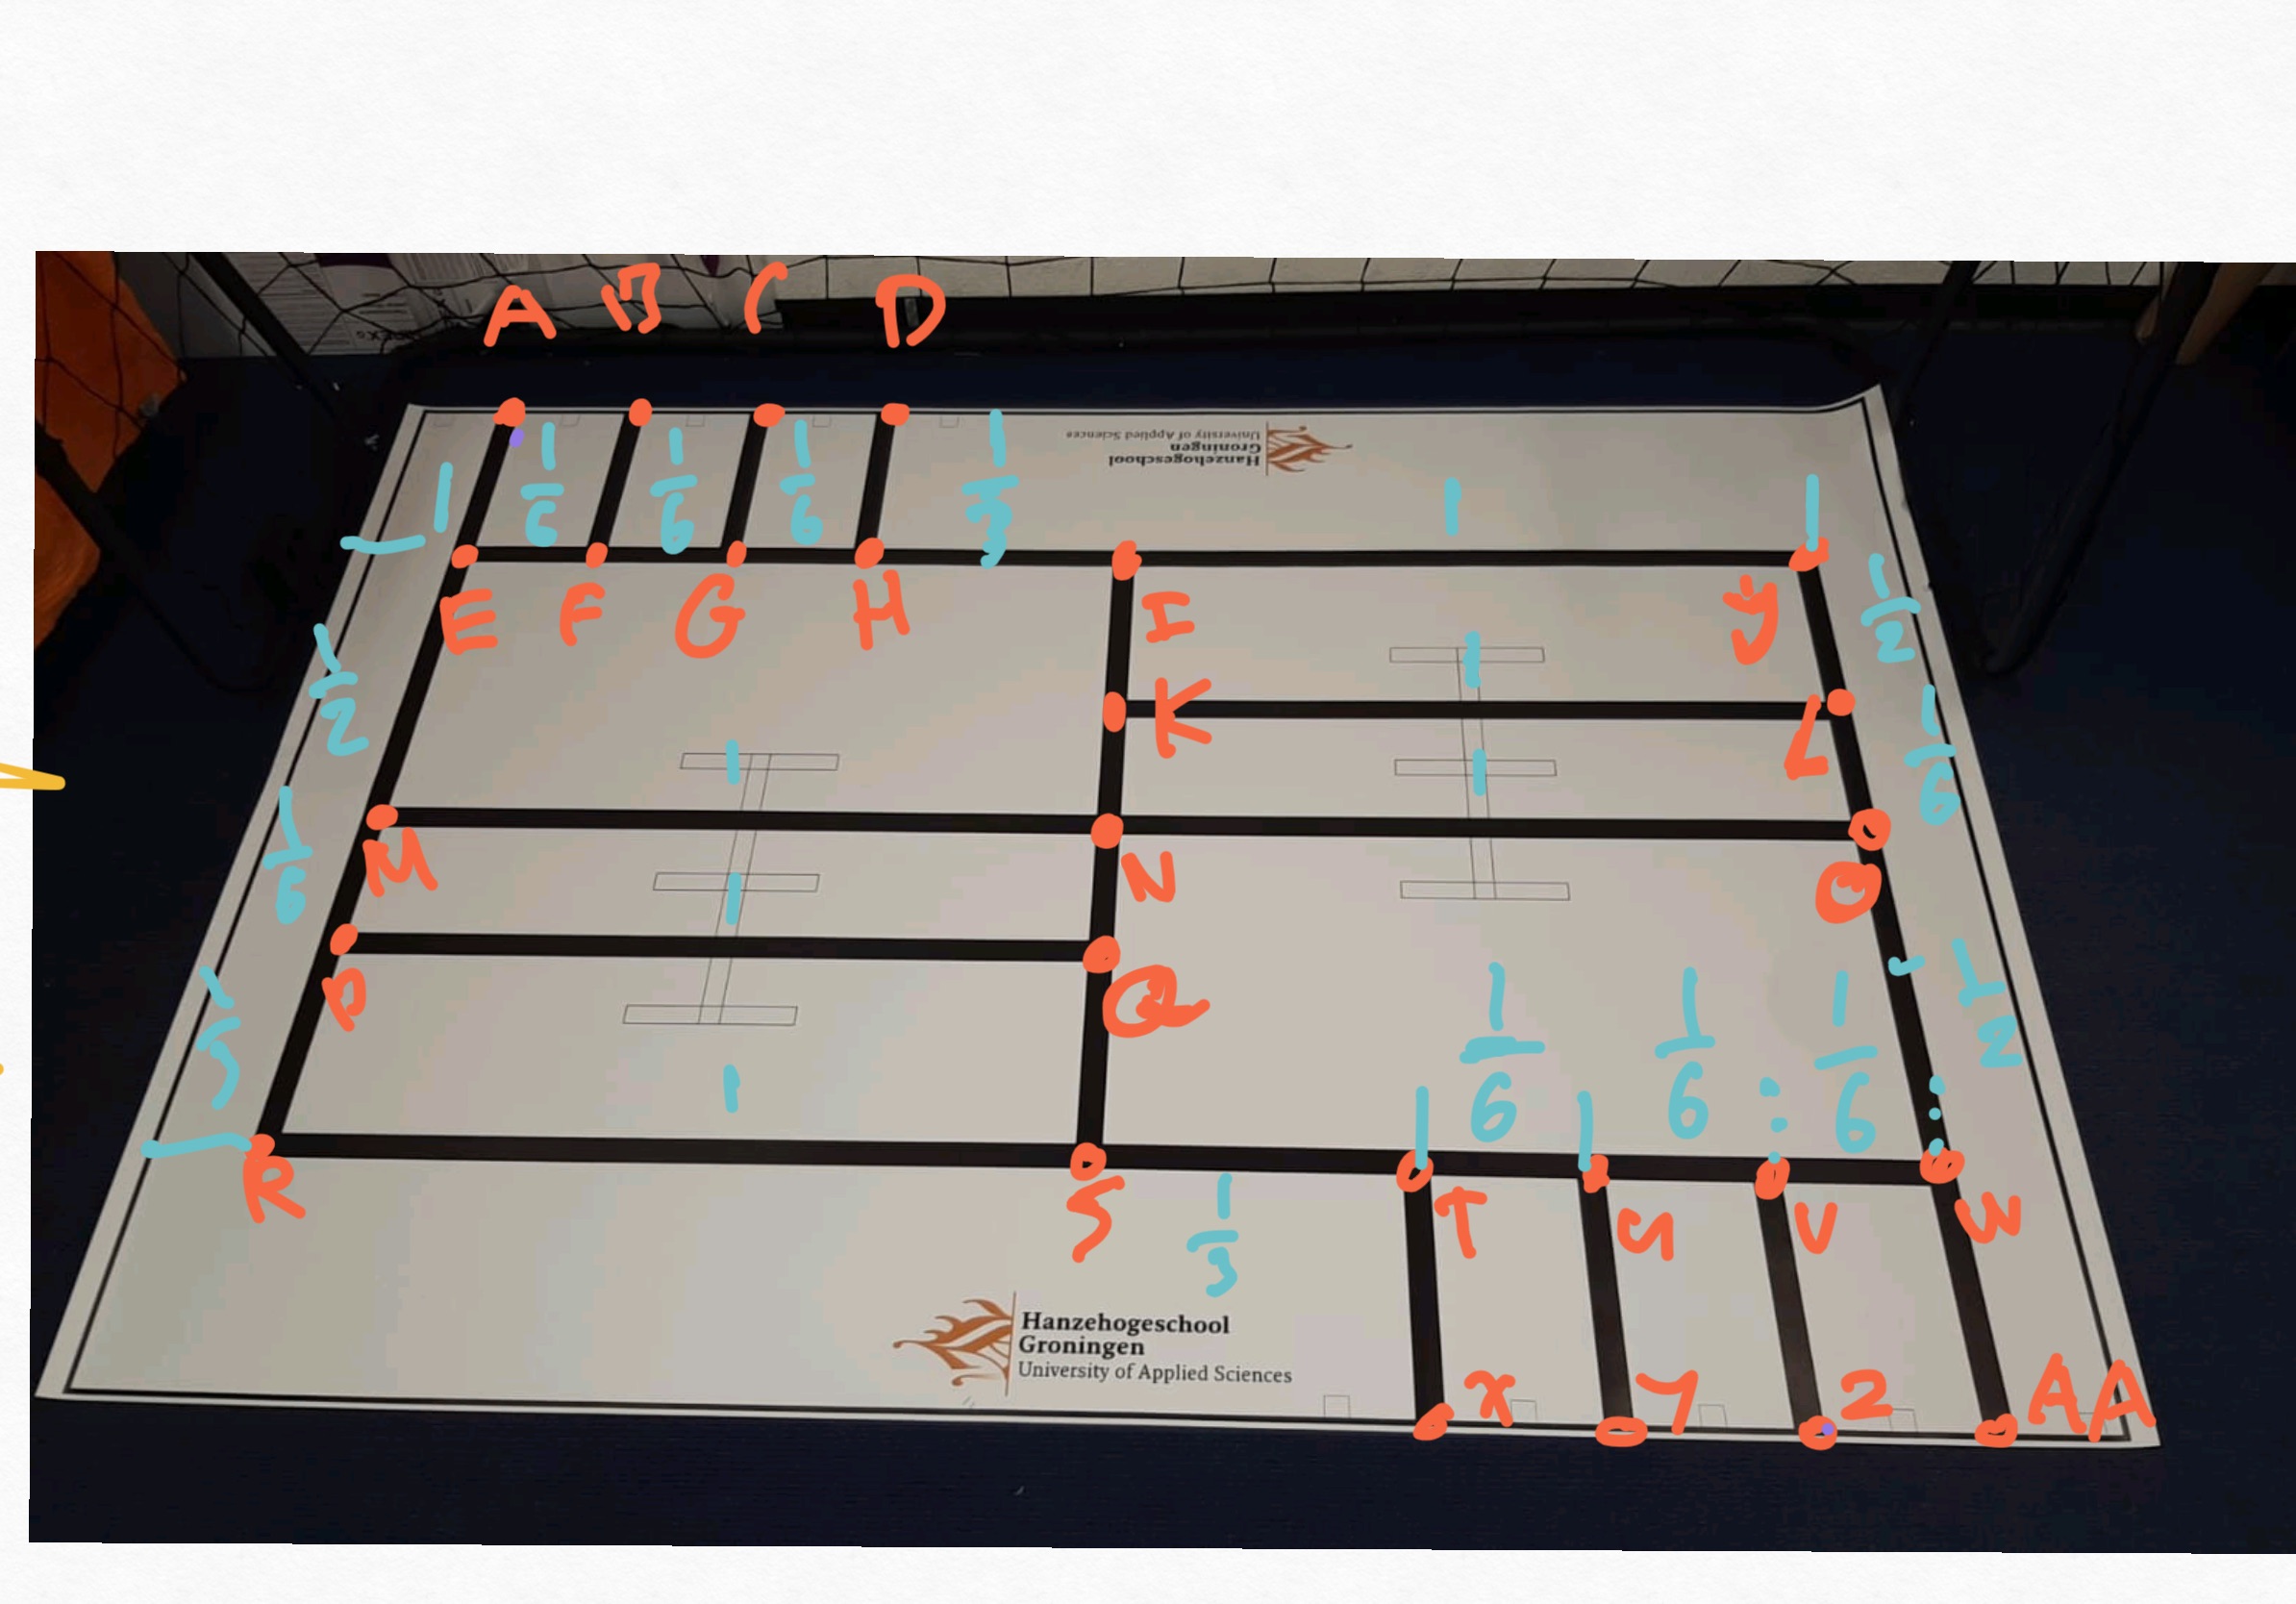 A B C D
Hanzehogeschool
Groningen
University of Applied Sciences
1 1/6 1/6 1/6 1/3 1 1
E F G H I J 1/2
1/2 K 1 L 1/6
1 1
1/6 M N O
1
P Q 1/2
1/3 1 1/6 1/6 1/6
R S T U V W
1/3
Hanzehogeschool
Groningen
University of Applied Sciences
X Y Z AA